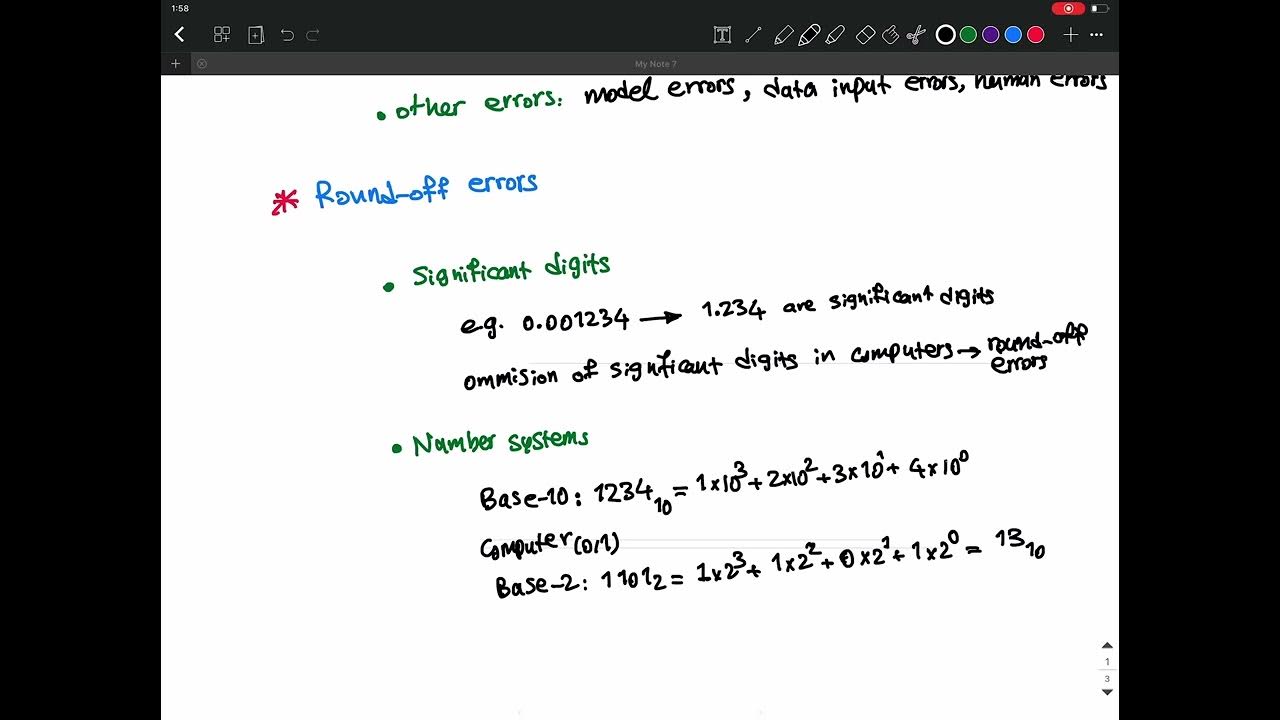 1:58
My Note 7
• other errors: model errors, data input errors, human errors
* Round-off errors
• Significant digits
e.g. 0.001234 → 1.234 are significant digits
ommision of significant digits in computers → round-off
errors
• Number systems
Base-10: 1234₁₀ = 1×10³ + 2×10² + 3×10¹ + 4×10⁰
Computer (0,1)
Base-2: 1101₂ = 1×2³ + 1×2² + 0×2¹ + 1×2⁰ = 13₁₀
1
3